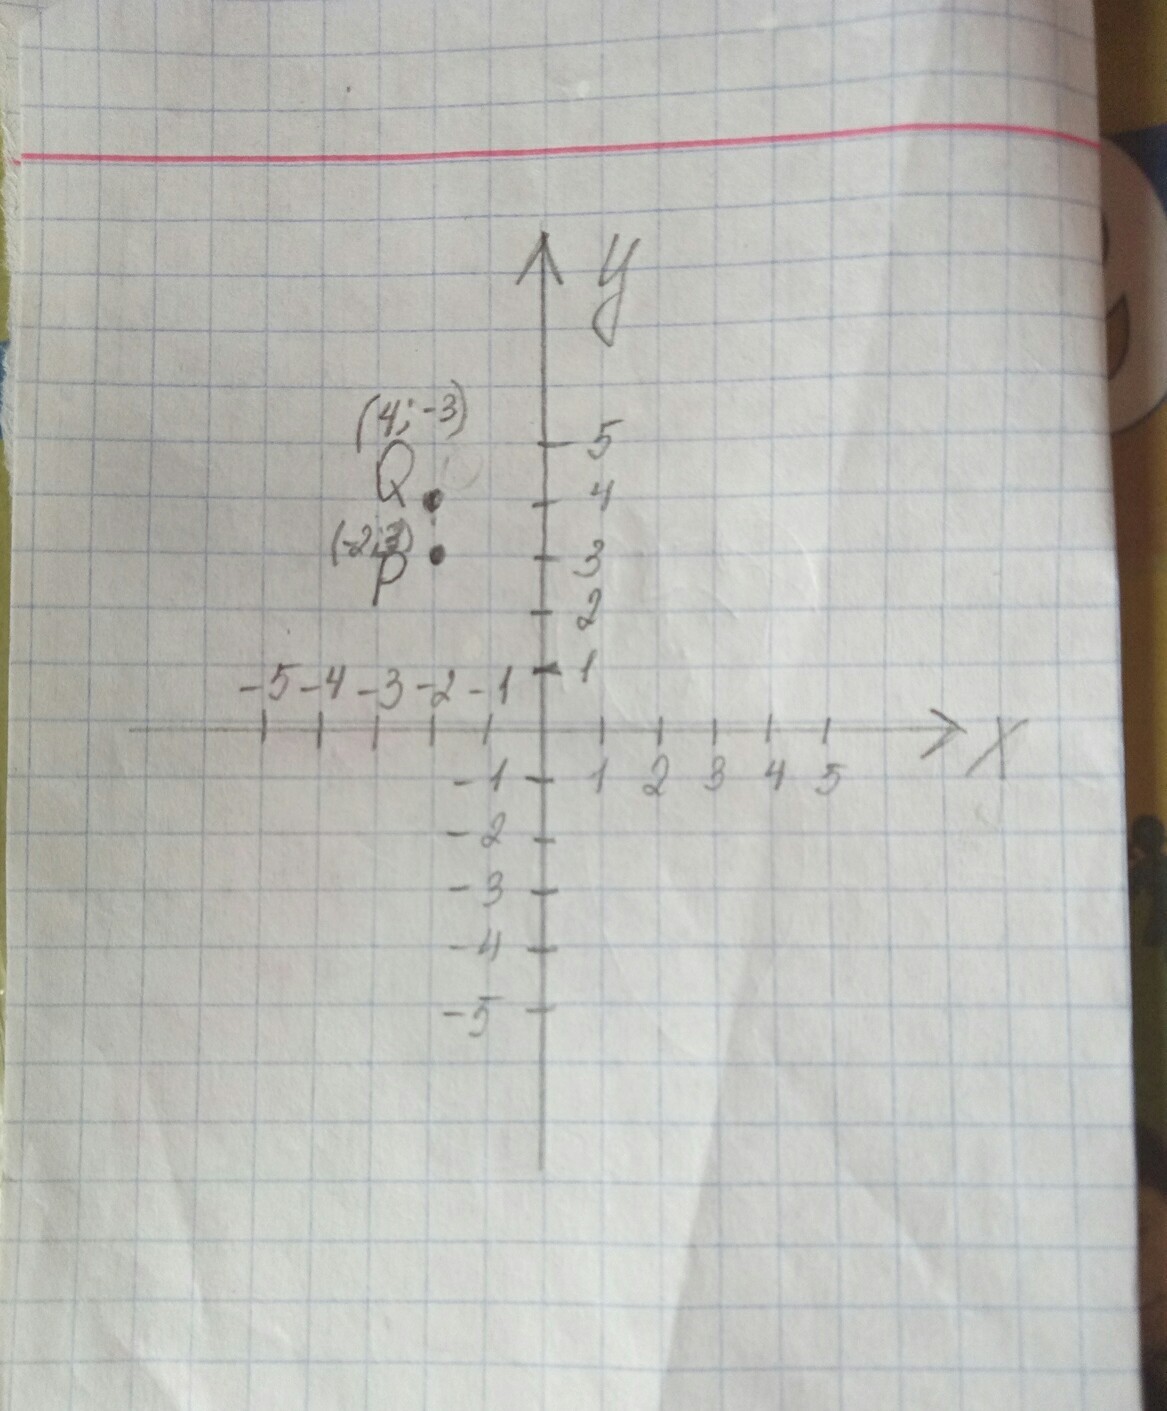 y
(4; -3)
5
Q
4
(-2;3)
3
P
2
1
-5 -4 -3 -2 -1
X
-1 1 2 3 4 5
-2
-3
-4
-5